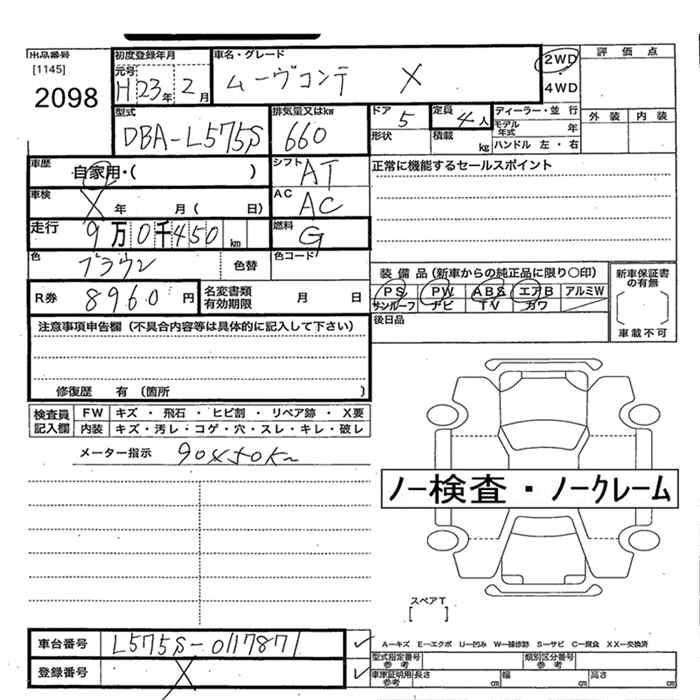 出品番号
[1145]
2098
初度登録年月
元号
H23年2月
車名・グレード
ムーヴコンテ X
2WD
・
4WD
評価点
外装 内装
型式
DBA-L575S
排気量又はkw
660
ドア 5
形状
定員 4人
積載 kg
ディーラー・並行
モデル年式 年
ハンドル 左・右
車歴
自家用・( )
シフト AT
正常に機能するセールスポイント
車検
X 年 月( 日)
AC AC
走行
9万0千450 km
燃料 G
色
ブラウン
色替
色コード
装備品(新車からの純正品に限り○印)
PS PW ABS エアB アルミW
サンルーフ ナビ TV カワ
新車保証書の有無
車載不可
R券 8960円
名変書類有効期限 月 日
後日品
注意事項申告欄(不具合内容等は具体的に記入して下さい)
修復歴 有(箇所 )
検査員記入欄
FW キズ・飛石・ヒビ割・リペア跡・X要
内装 キズ・汚レ・コゲ・穴・スレ・キレ・破レ
メーター指示 90450Km
ノー検査・ノークレーム
スペアT
[ ]
車台番号 L575S-0117871
登録番号 X
A―キズ E―エクボ U―凹み W―補修跡 S―サビ C―腐食 XX―交換済
型式指定番号参考
類別区分番号参考
車庫証明用参考 長さ cm 幅 cm 高さ cm